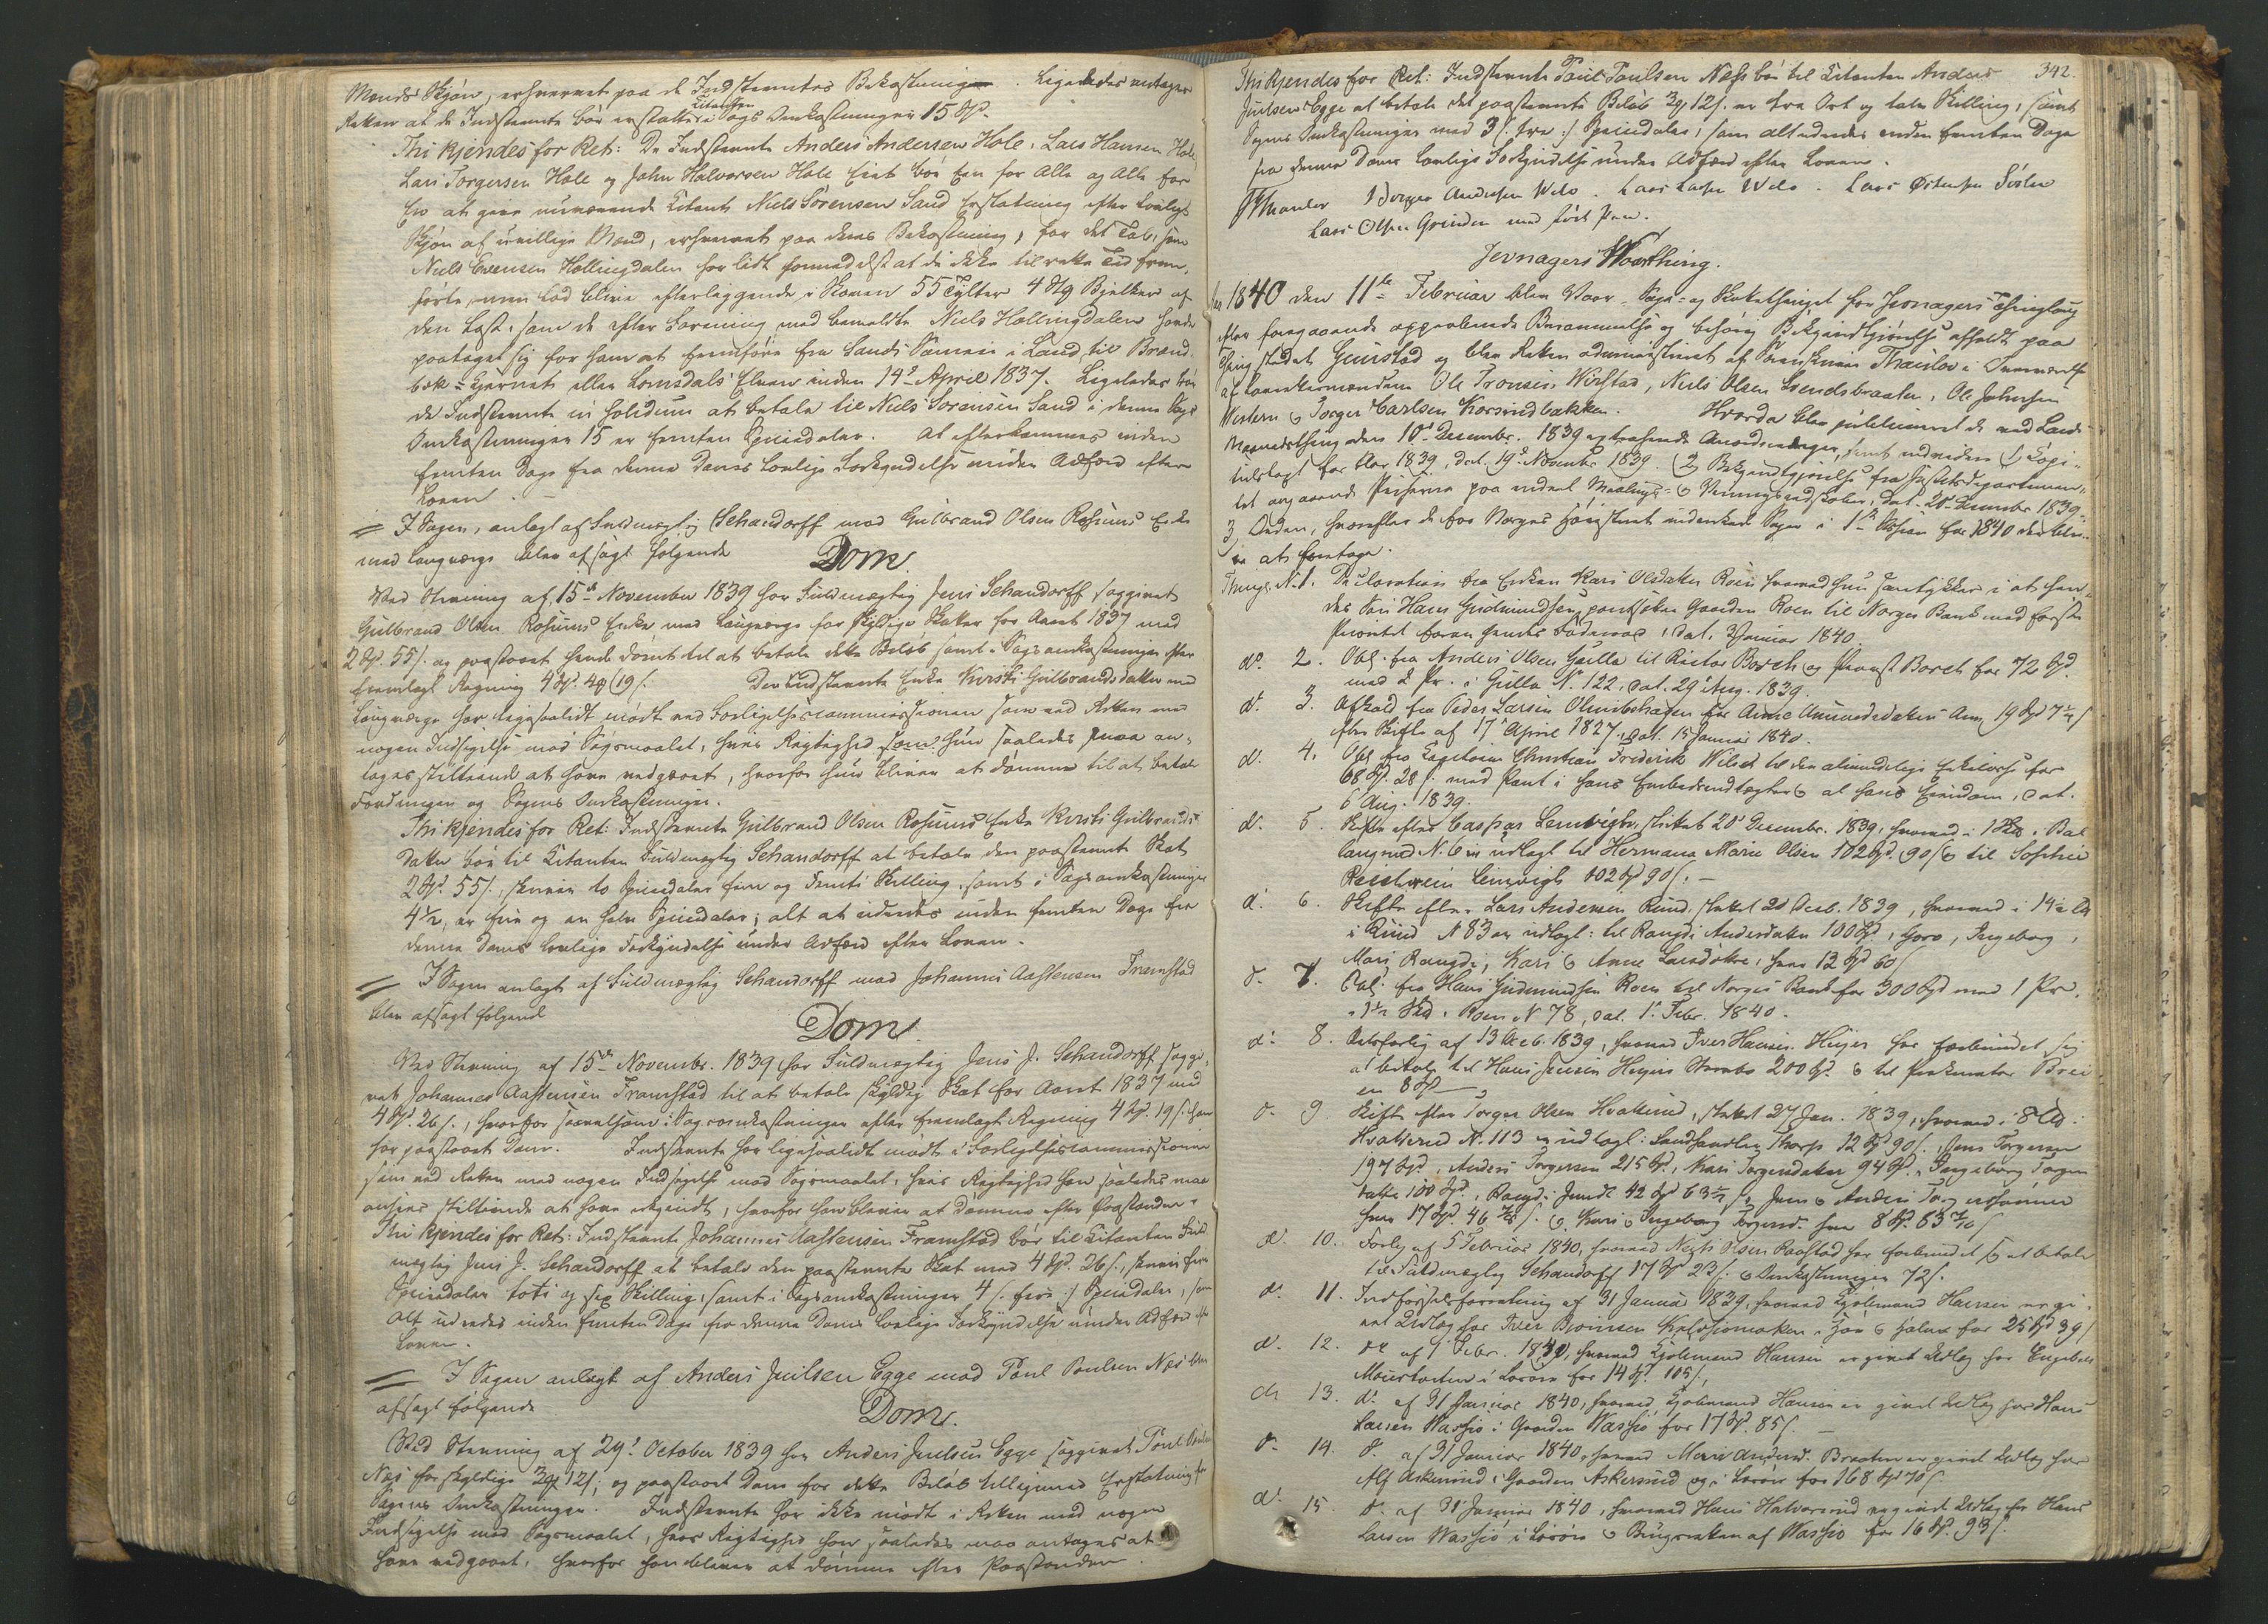 Mænds Skjøn, erhvervet paa de Indstevntes Bekostning. Ligeledes antager
Retten at de Indstevnte bør erstatte Citanten Sags Omkostninger 15 Spd.
Thi kjendes for Ret: De Indstevnte Anders Andersen Hole, Lars Hansen Hole
Lars Torgersen Hole og John Halvorsen Hole bør Een for Alle og Alle for
Een at give nærværende Citant Niels Sørensen Sand Erstatning efter lovligt
Skjøn af uvillige Mænd, erhvervet paa deres Bekostning, for det Tab, som
Niels Evensen Hollingdalen har lidt formedelst at de ikke til rette Tid frem-
førte, men lod blive efterliggende i Skoven 55 Tylter 4 Stk Bjelker af
den Last, som de efter Forening med bemeldte Niels Hollingdalen havde
paataget sig for ham at fremføre fra Sands Sameie i Land til Brand-
bæk-Tjernet eller Lomsdals Elven inden 14de April 1837. Ligeledes bør
de Indstevnte in solidum at betale til Niels Sørensen Sand i denne Sags
Omkostninger 15 er femten Speciedaler. At efterkommes inden
femten Dage fra denne Doms lovlige Forkyndelse under Adfærd efter
Loven.
I Sagen, anlagt af Fuldmægtig Schandorff mod Gulbrand Olsen Rosums Enke
med Laugværge blev afsagt følgende
Dom.
Ved Stevning af 15de November 1839 har Fuldmægtig Jens Schandorff saggivet
Gulbrand Olsen Rosums Enke med Laugværge for skyldige Skatter for Aaret 1837 med
2 Spd. 55 s. og paastaaet hende dømt til at betale dette Beløb samt Sagsomkostninger efter
fremlagt Regning 4 Spd. 19 s. Den Indstevnte Enke Kirsti Gulbrandsdatter med
Laugværge har ligesaalidt mødt ved Forligelsescommissionen som ved Retten med
nogen Indsigelse mod Søgsmaalet, hvis Rigtighed hun saaledes maa an-
tages stiltiende at have vedgaaet, hvorfor hun bliver at dømme til at betale
Fordringen og Sagens Omkostninger.
Thi kjendes for Ret: Indstevnte Gulbrand Olsen Rosums Enke Kirsti Gulbrands-
datter bør til Citanten Fuldmægtig Schandorff at betale den paastevnte Skat
2 Spd. 55 s., skriver to Speciedaler fem og femti Skilling, samt i Sagsomkostninger
4½, er fire og en halv Speciedaler; alt at udredes inden femten Dage fra
denne Doms lovlige Forkyndelse under Adfærd efter Loven.
I Sagen anlagt af Fuldmægtig Schandorff mod Johannes Aastensen Framstad
blev afsagt følgende
Dom
Ved Stevning af 15de Novembr. 1839 har Fuldmægtig Jens J. Schandorff saggi-
vet Johannes Aastensen Framstad til at betale skyldig Skat for Aaret 1837 med
4 Spd. 26 s., hvorfor saavelsom i Sagsomkostninger efter fremlagt Regning 4 Spd. 19 s. han
har paastaaet Dom. Indstevnte har ligesaalidt mødt i Forligelsescommissionen
som ved Retten med nogen Indsigelse mod Søgsmaalet, hvis Rigtighed han saaledes maa
ansees stiltiende at have erkjendt, hvorfor han bliver at dømme efter Paastanden.
Thi kjendes for Ret: Indstevnte Johannes Aastensen Framstad bør til Citanten Fuld-
mægtig Jens J. Schandorff at betale den paastevnte Skat med 4 Spd. 26 s., skriver fire
Speciedaler toti og sex Skilling, samt i Sagsomkostninger 4 s. fire :/ Speciedaler, som
alt udredes inden femten Dage fra denne Doms lovlige Forkyndelse under Adfærd efter
Loven.
I Sagen anlagt af Anders Juulsen Egge mod Poul Poulsen Næs blev
afsagt følgende
Dom.
Ved Stevning af 29de October 1839 har Anders Juulsen Egge saggivet Poul Poulsen
Næs for skyldige 3 12 s. og paastaaet Dom for dette Beløb tilligemed Erstatning for
Sagens Omkostninger. Indstevnte har ikke mødt i Retten med nogen
Indsigelse mod Søgsmaalet, hvis Rigtighed han saaledes maa antages at
have vedgaaet, hvorfor han bliver at dømme efter Paastanden.
342.
Thi kjendes for Ret: Indstevnte Poul Poulsen Næss bør til Citanten Anders
Juulsen Egge at betale det paastevnte Beløb 3 12 s. er tre Ort og tolv Skilling, samt
Sagens Omkostninger med 3 /: tre :/ Speciedaler, som alt udredes inden femten Dage
fra denne Doms lovlige Forkyndelse under Adfærd efter Loven.
Thaulov Torger Andersen Velo. Lars Larsen Velo. Lars Østensen
Lars Olsen Grinden med ført Pen.
Jevnagers Vaarthing.
1840 den 11te Februar blev Vaar-, Sage- og Skattethinget for Jevnagers Thinglaug
efter foregaaende approberede Berammelse og behørig Bekjendtgjørelse afholdt paa
Thingstedet Grinstad og blev Retten administreret af Sorenskriver Thaulov i Overværelse
af Laugrettesmændene Ole Tronsen Wirstad, Niels Olsen Svendsbraaten, Ole Johnsen
Western og Torger Carlsen Korsrudbakken. Hvorda blev publiceret de ved Lands
Maanedsthing den 10de Decembr. 1839 Anordninger, samt endvidere 1)
for Aar 1839, dat. 19de Novembr 1839. 2) Bekjendtgjørelse fra Finantsdepartemen-
tet angaaende Priserne paa endeel Maalings- og Veiningsredskaber, dat. 20de Decembr 1839.
3, Orden, hvorefter de for Norges Høiesteret indankede Sager i 1ste Session for 1840 ville bli-
ve at foretage.
Thingl. N. 1. Declaration fra Enken Kari Olsdatter Roen hvorved hun samtykker i at hen-
des Søn Hans Gudmundsen pantsætter Gaarden Roen til Norges Bank med første
Prioritet foran hendes Føderaad, dat. 3 Januar 1840.
do. 2. Obl. fra Anders Olsen Gulla til Rector Borch og Provst Borch for 72 Spd.
med 2 Pr. i Gulla N. 122, dat. 29de Aug. 1839.
do. 3. Afkald fra Peder Larsen for Anne Amundsdatters Arv 19 Spd
efter Skifte af 17de April 1827, dat. 15 Januar 1840.
do. 4. Obl. fra Capitain Christian Frederik Wilset til den almindelige Enkekasse for
68 Spd. 28 s. med Pant i hans Embedsindtægter og al hans Eiendom, dat.
6 Aug. 1839.
do. 5. Skifte efter Caspar Lemvigh, sluttet 20de Decembr. 1839, hvorved i
N. 6 er udlagt til Hermana Marie Olsen 102 Spd. 90 s. og til Sophie
Lemvigh 102 Spd 90 s.
do. 6. Skifte efter Lars Andersen Ruud, sluttet 20 Decb. 1839, hvorved i
i Ruud N 83 er udlagt: til Rangdi Andersdatter 100 Spd, Goro, Ingeborg,
Mari, Rangdi, Kari og Anne Larsdøtre, hver 12 Spd 60 s
do. 7. Obl. fra Hans Gudmundsen Roen til Norges Bank for 300 Spd med 1 Pr.
i Roen N 78, dat. 1 Febr. 1840.
do. 8. Retsforlig af 13 Decb. 1839, hvorved Iver Hansen har forbundet sig
at betale til Hans Jensen 200 Spd. og til Prokurator
en 8 Spd
do. 9. Skifte efter Torger Olsen Hvallerud, sluttet 27 Jan. 1839, hvorved i
N. 113 er udlagt: Landhandler Thorp 12 Spd 90 s., Torgersen
197 Spd., Anders Torgersen 215 Spd., Kari Torgersdatter 94 Spd., Ingeborg Torgers-
datter 100 Spd., Rangdi 42 Spd
hver 17 Spd. 46 s. og Kari og Ingeborg Torgersd. hver 8 Spd.
do. 10. Forlig af 5 Februar 1840, hvorved Niels Olsen har forbundet sig at betale
til Fuldmægtig Schandorff 17 Spd 23 s. og Omkostninger 72 s.
do. 11. Indførselsforretning af 31 Januar 1839, hvorved Gjølmand Hansen er gi-
vet Udlæg hos Iver i Høe og Halm for 25 Spd 39 s
do. 12. do af 1 Febr. 1840, hvorved Gjølmand Hansen er givet Udlæg hos Engebret
i Løsøre for 14 Spd. 105 s.
do 13. do. af 31 Januar 1840, hvorved Gjølmand Hansen er givet Udlæg hos Hans
Larsen Wassjø i Gaarden Wassjø for 17 Spd. 85 s.
do. 14. do. af 31 Januar 1840, hvorved Mari Andersd. Braaten er givet Udlæg hos
Alf Askerud i Gaarden Askerud og i Løsøre for 168 Spd 70 s.
do. 15. do. af 31 Januar 1840, hvorved Hans Halvorsrud er givet Udlæg hos Hans
Larsen Wassjø i Løsøre og Brugsretten af Wassjø for 16 Spd. 93 s.